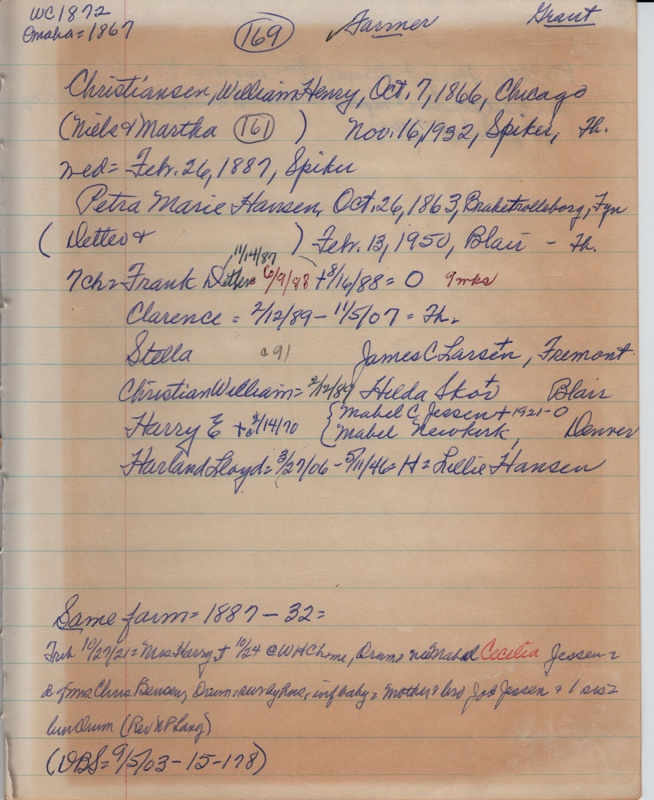 WC1872
Omaha = 1867
169
Farmer
Grant
Christiansen, William Henry, Oct. 7, 1866, Chicago
(Niels & Martha 161 ) Nov. 16, 1932, Spiker, Th.
wed = Feb. 26, 1887, Spiker
Petra Marie Hansen, Oct. 26, 1863, Brahetrolleborg, Fyn
(Detlev & ) Feb. 13, 1950, Blair - Th.
11/14/87
7 ch = Frank 6/9/88 + 8/16/88 = 0 9 wks
Clarence = 2/12/89 - 11/5/07 = Th.
Stella c 91 James C Larsen, Fremont
Christian William = 2/12/89 Hilda Skov Blair
Harry E + 2/14/70 { Mabel C. Jessen + 1921-0
Mabel Newkirk, Denver
Harland Lloyd = 3/27/06 - 5/11/46 = H = Lillie Hansen
Same farm = 1887 - 32 =
Trib 10/27/21 = Mrs Harry + 10/24 @ WHC home, Orum = nee Mabel Cecelia Jessen =
d of Mrs Chris Bensen, Orum = surv by hus, inf baby = mother & bro Joe Jessen & 1 sis =
bur Orum (Rev NP Lang)
(DBS = 9/5/03 - 15 - 178)